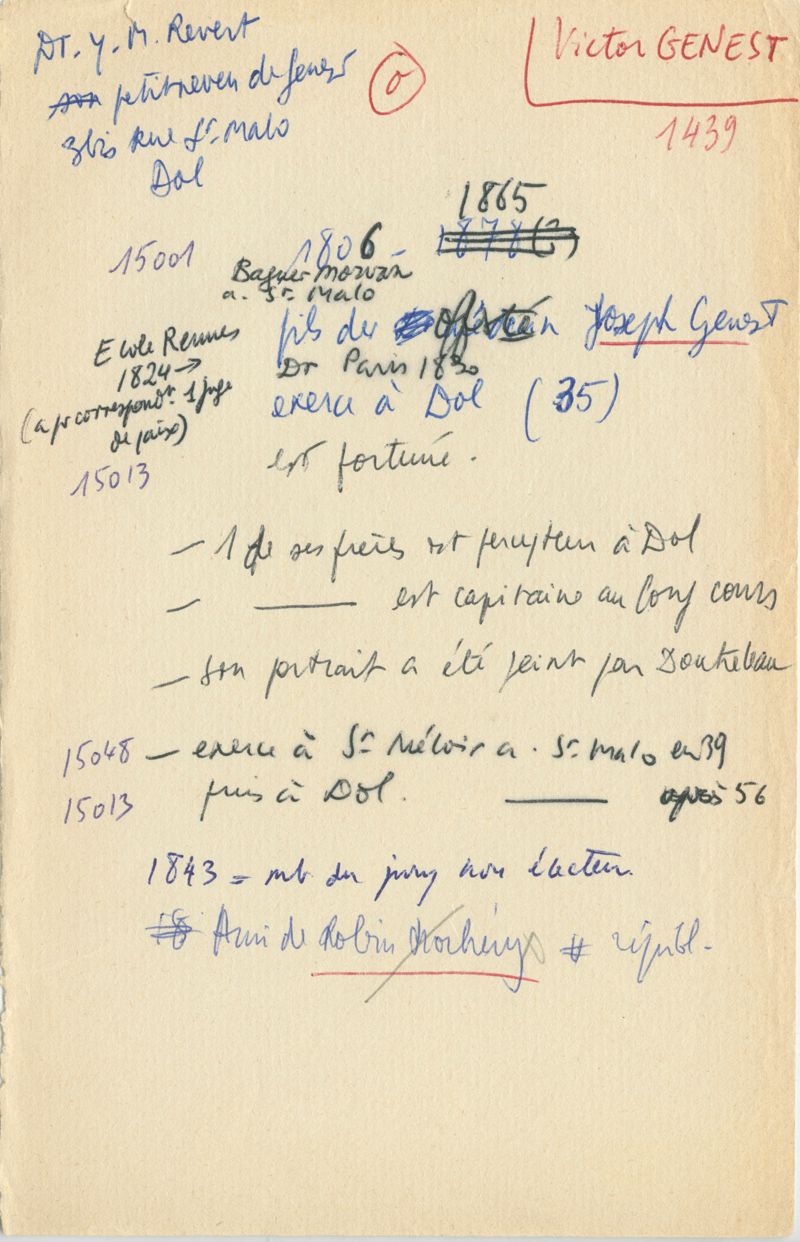 Dr. Y. M. Revert
son petit neveu de Genest
3bis Rue St-Malo
Dol
O
Victor GENEST
1439
1865
15001
1806 - 1878 (?)
Baguer Morvan
a. St Malo
fils de Joseph Genest
Ecole Rennes
1824 →
(a pr correspondt 1 juge
de paix)
Dr Paris 1830
exerce à Dol (35)
15013
est fortuné.
- 1 de ses frères est percepteur à Dol
- —— est capitaine au long cours
- son portrait a été peint par
15048 - exerce à St Méloir a. St Malo en 39
15013 puis à Dol. —— après 56
1843 = mb du jury non électeur.
18 Ami de Robin # républ.